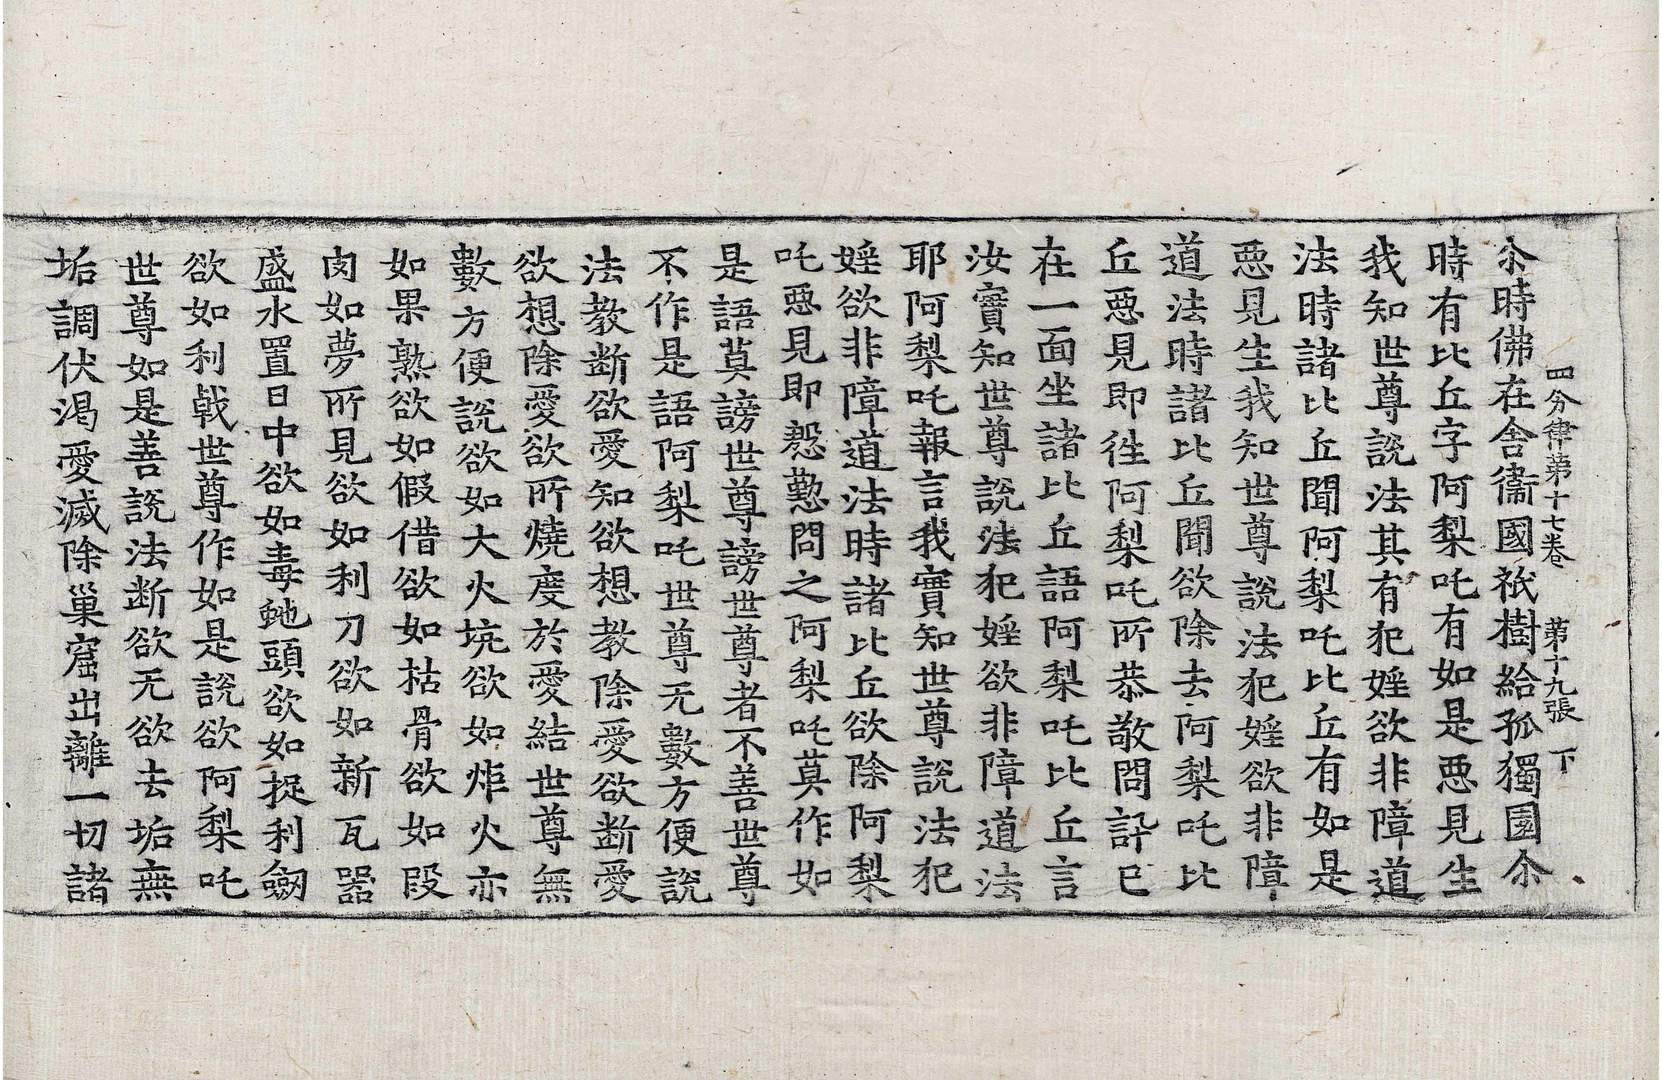 四分律第十七卷 第十九張 下
尒時佛在舍衛國祇樹給孤獨園尒
時有比丘字阿梨吒有如是惡見生
我知世尊說法其有犯婬欲非障道
法時諸比丘聞阿梨吒比丘有如是
惡見生我知世尊說法犯婬欲非障
道法時諸比丘聞欲除去阿梨吒比
丘惡見即往阿梨吒所恭敬問訊已
在一面坐諸比丘語阿梨吒比丘言
汝實知世尊說法犯婬欲非障道法
耶阿梨吒報言我實知世尊說法犯
婬欲非障道法時諸比丘欲除阿梨
吒惡見即慇懃問之阿梨吒莫作如
是語莫謗世尊謗世尊者不善世尊
不作是語阿梨吒世尊无數方便說
法教斷欲愛知欲想教除愛欲斷愛
欲想除愛欲所燒度於愛結世尊無
數方便說欲如大火坑欲如炬火亦
如果熟欲如假借欲如枯骨欲如段
肉如夢所見欲如利刀欲如新瓦器
盛水置日中欲如毒虵頭欲如捉利劒
欲如利戟世尊作如是說欲阿梨吒
世尊如是善說法斷欲无欲去垢無
垢調伏渴愛滅除巢窟出離一切諸